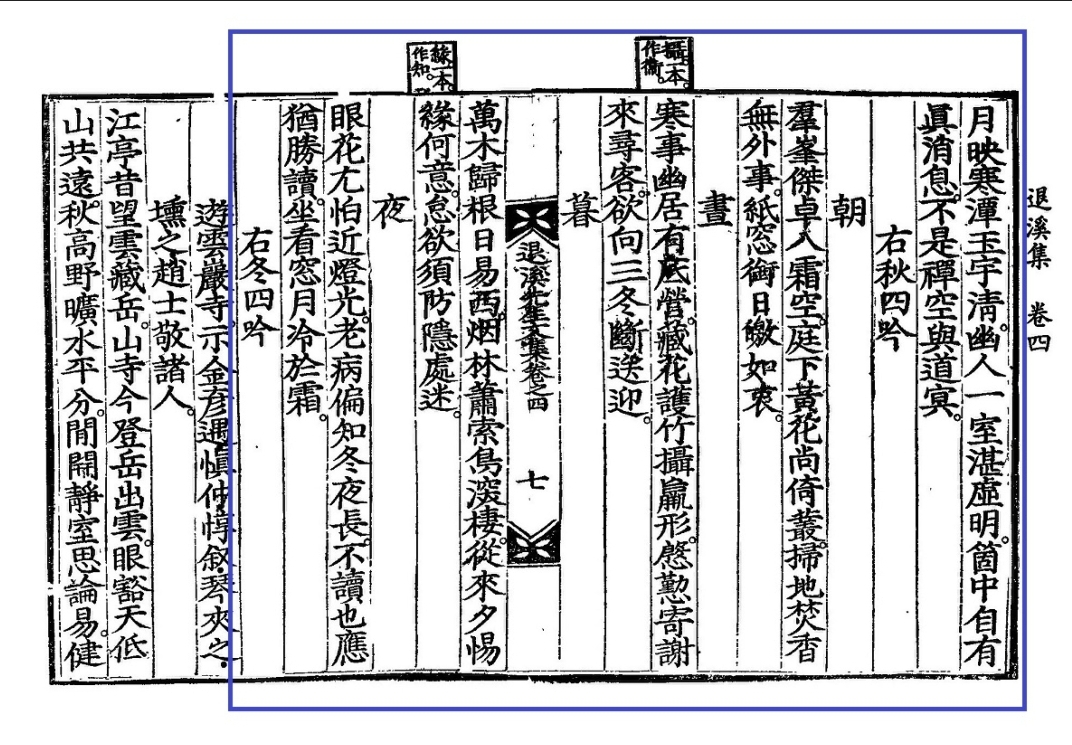 退溪集 卷四
月映寒潭玉宇淸。幽人一室湛虛明。箇中自有
眞消息。不是禪空與道冥。
右秋四吟
朝
羣峯傑卓入霜空。庭下黃花尙倚叢。掃地焚香
無外事。紙窓銜日皦如衷。
晝
寒事幽居有底營。藏花護竹攝羸形。慇懃寄謝
來尋客。欲向三冬斷送迎。
攝一本。
作衛。
暮
退溪先生文集卷之四
七
萬木歸根日易西。烟林蕭索鳥深棲。從來夕惕
緣何意。怠欲須防隱處迷。
緣一本。
作知。
夜
眼花尤怕近燈光。老病偏知冬夜長。不讀也應
猶勝讀。坐看窓月冷於霜。
右冬四吟
遊雲巖寺。示金彦遇,愼仲,惇叙,琴夾之,
壎之,趙士敬諸人。
江亭昔望雲藏岳。山寺今登岳出雲。眼豁天低
山共遠。秋高野曠水平分。閒關靜室思論易。健